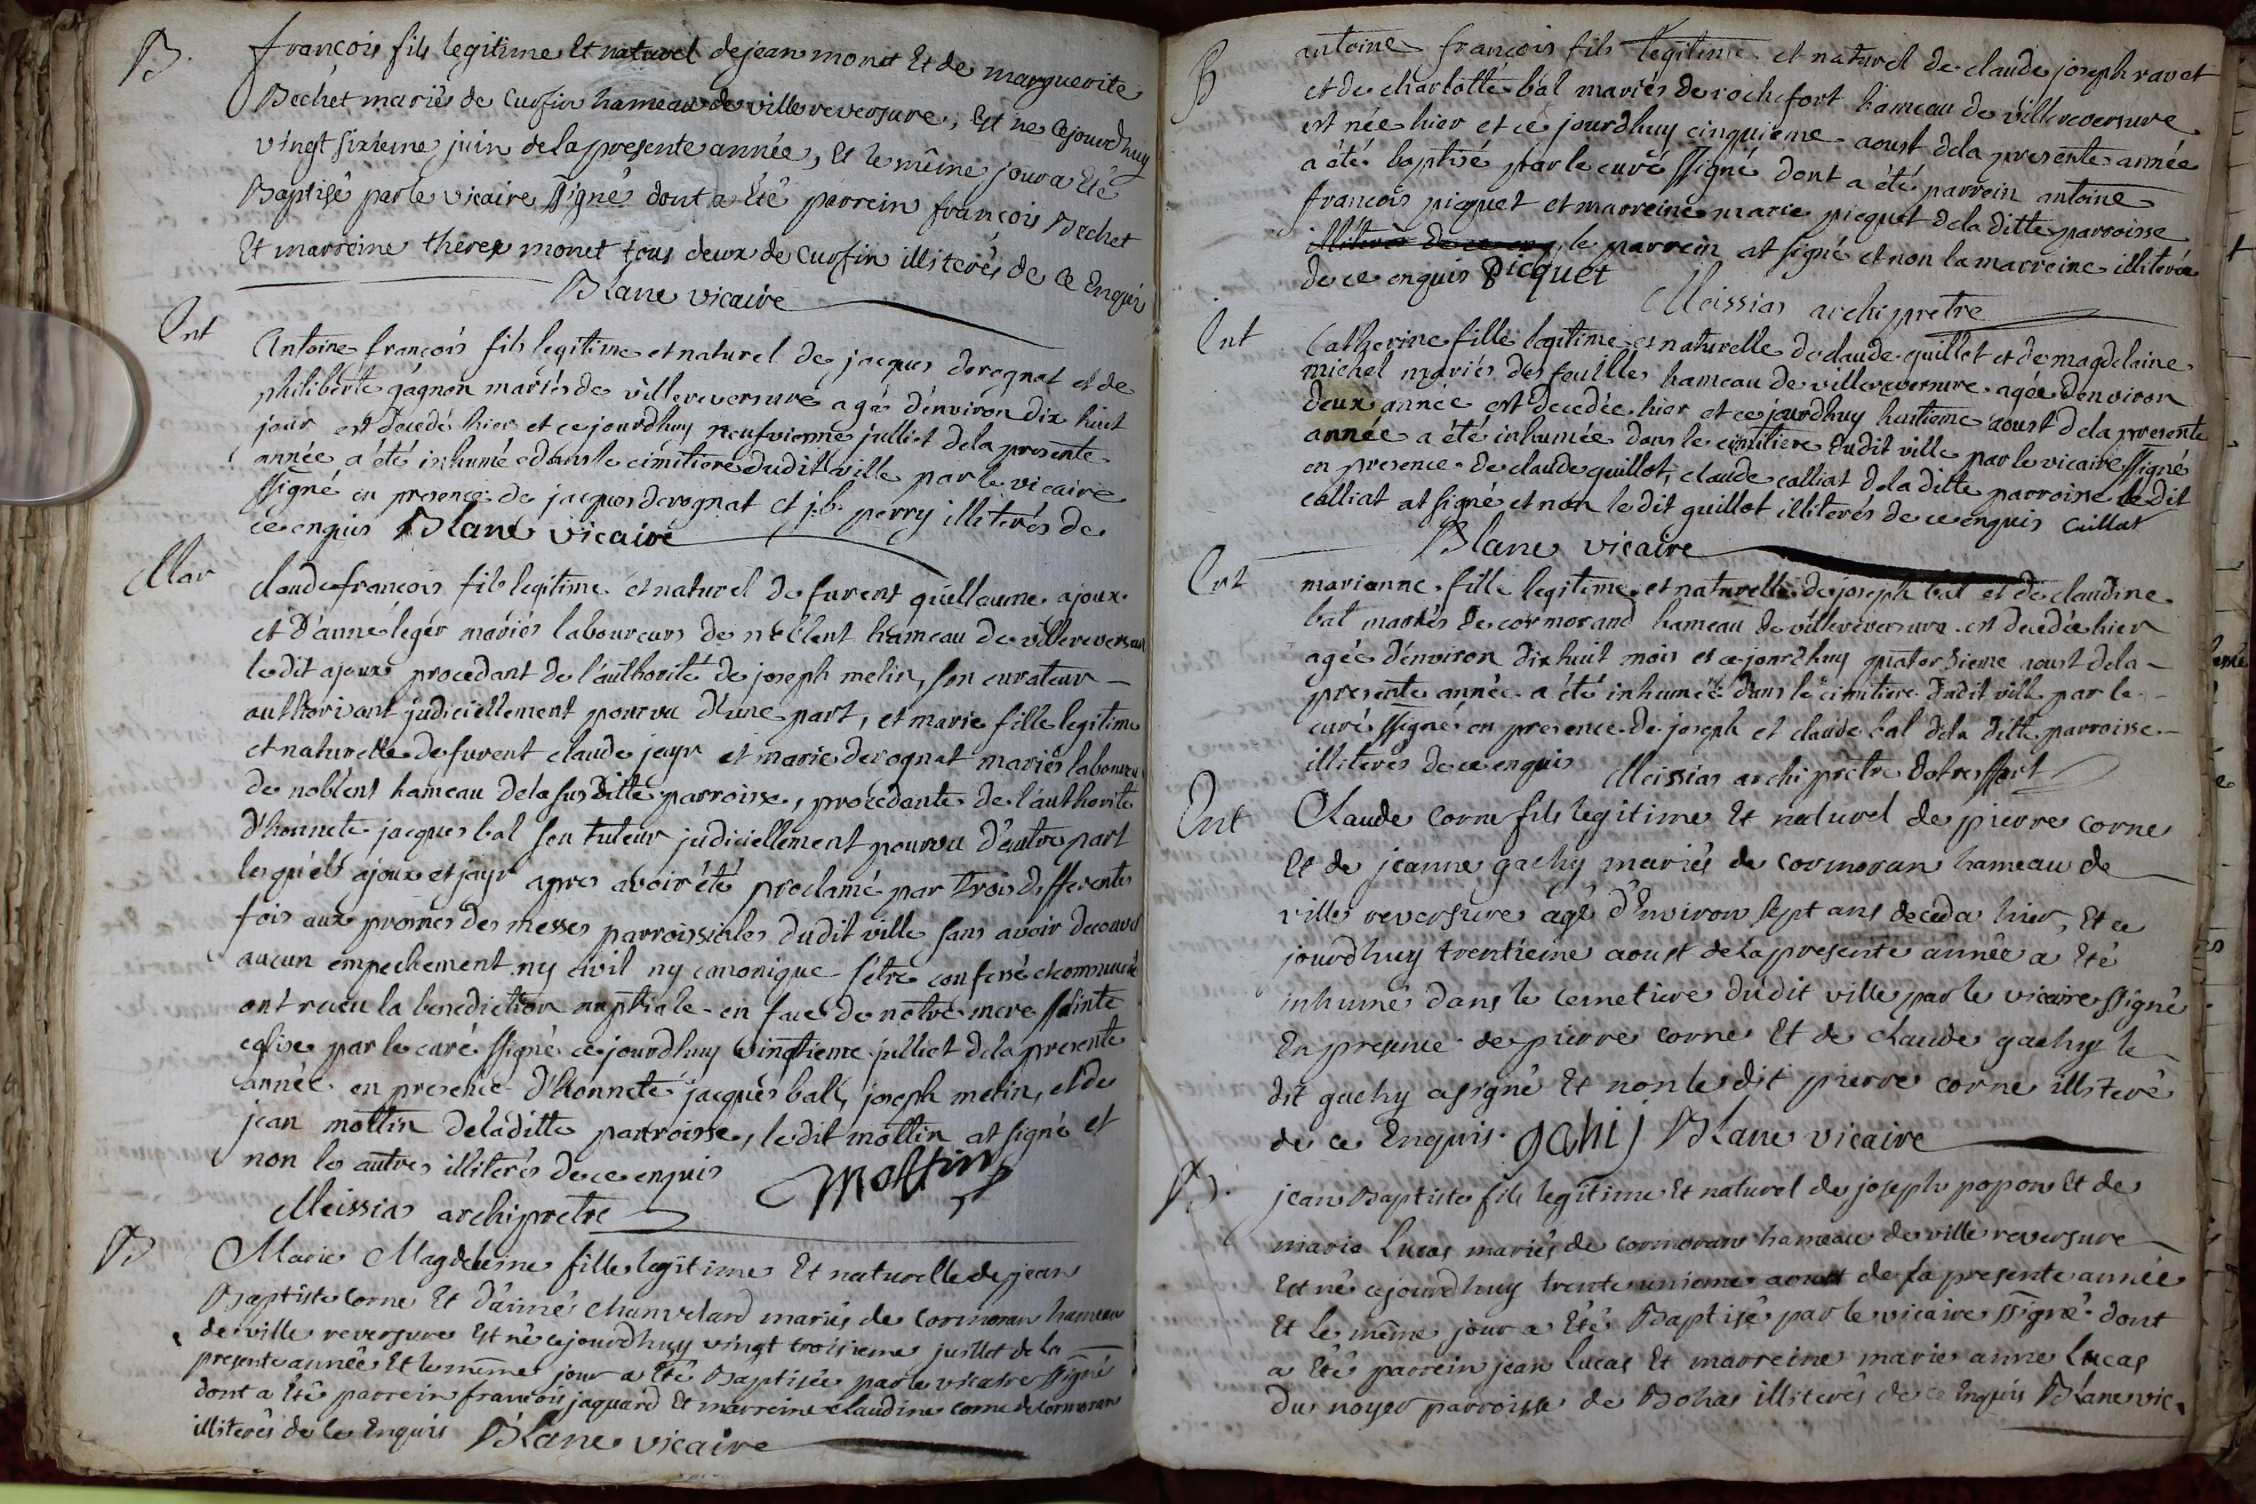 B. françois fils legitime Et naturel de jean monet Et de marguerite
Bechet mariés de Curfin hameau de ville reversure, Est né Cejourdhuy
vingt sixieme juin de la presente année, Et le même jour a Eté
Baptisé par le vicaire ssigné dont a Eté parrein françois Bechet
Et marreine therese monet tous deux de Curfin illiterés de Ce Enquis
Blanc vicaire
Ent Antoine françois fils legitime et naturel de jacques derognat et de
philiberte gagnon mariés de villereversure agé d'environ dix huit
jour est decedé hier et ce jourdhuy neufvieme julliet dela presente
année a été inhumé dans le cimitiere dudit ville par le vicaire
ssigné en presence de jacques derognat et j.b. perry illiterés de
ce enquis Blanc vicaire
Mar claude françois fils legitime et naturel de furent guillaume ajoux
et d'anne légér mariés laboureurs de noblent hameau de villereversure
le dit ajoux procedant de l'authorité de joseph melin, son curateur
authorisant judiciellement pourvu d'une part, et marie fille legitime
et naturelle de furent claude jayr et marie derognat mariés laboureur
de noblens hameau dela sus ditte parroisse, procedante de l'authorite
d'honnete jacques bal son tuteur judiciellement pourvu d'autre part
lesquels ajoux et jayr apres avoir été proclamé par trois differentes
fois aux prosnes des messes parroissiales dudit ville sans avoir decouvert
aucun empechement ny civil ny canonique s'etre confessé et communié
ont recu la benediction nuptiale en face de notre mere ssainte
eglise par le curé ssigné ce jourdhuy vingtieme julliet dela presente
année en presence d'honnete jacques bal, joseph melin, et de
jean mottin dela ditte parroisse, le dit mottin at signé et
non les autres illiterés de ce enquis
Mottin
Meissias archipretre
B Marie Magdeleine fille legitime Et naturelle de jean
Baptiste Corne Et d'aimée chanvelard mariés de Cormoran hameau
de ville reversure Est né cejourdhuy vingt troisieme juillet de la
presente année Et le même jour a Eté Baptisée par le vicaire ssigné
dont a Eté parrein francois jaquard Et marreine claudine corne de Cormoran
illiterés de Ce Enquis Blanc vicaire
B antoine françois fils legitime et naturel de claude joseph ravet
et de charlotte bal mariés de rochefort hameau de villereversure
est née hier et ce jourdhuy cinquieme aoust dela presente année
a été baptisé par le curé ssigné dont a été parrein antoine
françois picquet et marreine marie picquet dela ditte parroisse
illiterés de ce enq, le parrein at signé et non la marreine illiterée
de ce enquis Picquet
Meissias archipretre
Ent Catherine fille legitime et naturelle de claude guillot et de magdelaine
michel mariés des feuilles hameau de villereversure agée denviron
deux année est decedée hier et ce jourdhuy huitieme aoust dela presente
année a été inhumée dans le cimitiere dudit ville par le vicaire ssigné
en presence de claude guillot, claude calliat dela ditte parroisse le dit
calliat at signé et non le dit guillot illiterés de ce enquis Caillat
Blanc vicaire
Ent marianne fille legitime et naturelle de joseph bal et de claudine
bal mariés de cormorand hameau de villereversure est decedée hier
agée d'environ dix huit mois et ce jourdhuy quatorzieme aoust dela
presente année a été inhumée dans le cimitiere dudit ville par le
curé ssigné en presence de joseph et claude bal dela ditte parroisse
illiterés de ce enquis Meissias archipretre de treffort
Ent Claude Corne fils legitime Et naturel de pierre Corne
Et de jeanne gachy mariés de Cormoran hameau de
ville reversure agé d'Environ sept ans deceda hier, Et ce
jourdhuy trentieme aoust de la presente année a Eté
inhumé dans le Cemetiere dudit ville par le vicaire ssigné
En presence de pierre Corne Et de Claude gachy le
dit gachy asigné Et non le dit pierre Corne illiteré
de ce Enquis. gahij Blanc vicaire
B. jean Baptiste fils legitime Et naturel de joseph popon Et de
marie Lucas mariés de Cormoran hameau de ville reversure
Est né cejourdhuy trente unieme aoust de la presente année
Et le même jour a Eté Baptisé par le vicaire ssigné dont
a Eté parrein jean Lucas Et marreine marie anne Lucas
Du noyer parroisse de Bohas illiterés de ce Enquis Blanc vic.